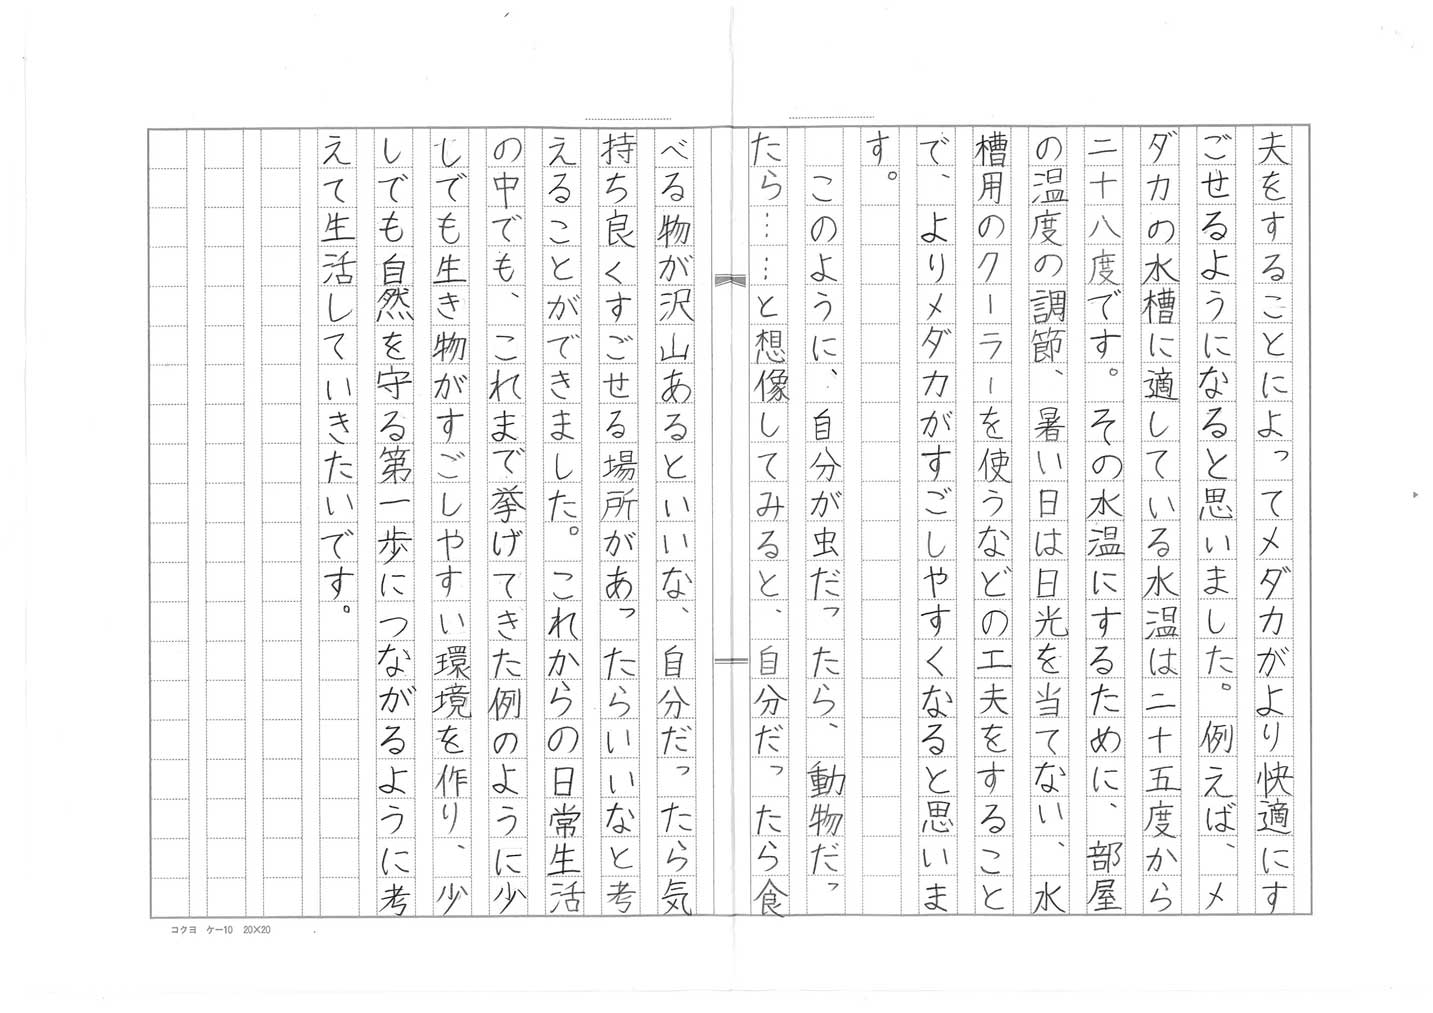 夫をすることによってメダカがより快適にす
ごせるようになると思いました。例えば、メ
ダカの水槽に適している水温は二十五度から
二十八度です。その水温にするために、部屋
の温度の調節、暑い日は日光を当てない、水
槽用のクーラーを使うなどの工夫をすること
で、よりメダカがすごしやすくなると思いま
す。
このように、自分が虫だったら、動物だっ
たら……と想像してみると、自分だったら食
べる物が沢山あるといいな、自分だったら気
持ち良くすごせる場所があったらいいなと考
えることができました。これからの日常生活
の中でも、これまで挙げてきた例のように少
しでも生き物がすごしやすい環境を作り、少
しでも自然を守る第一歩につながるように考
えて生活していきたいです。
コクヨ ケー10 20×20